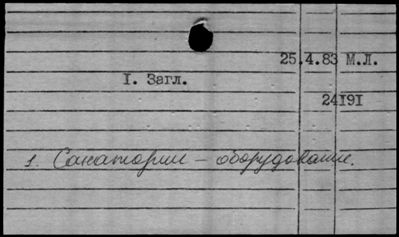 25.4.83 М.Л.
I. Загл.
24I9I
1. Санатории – оборудование.